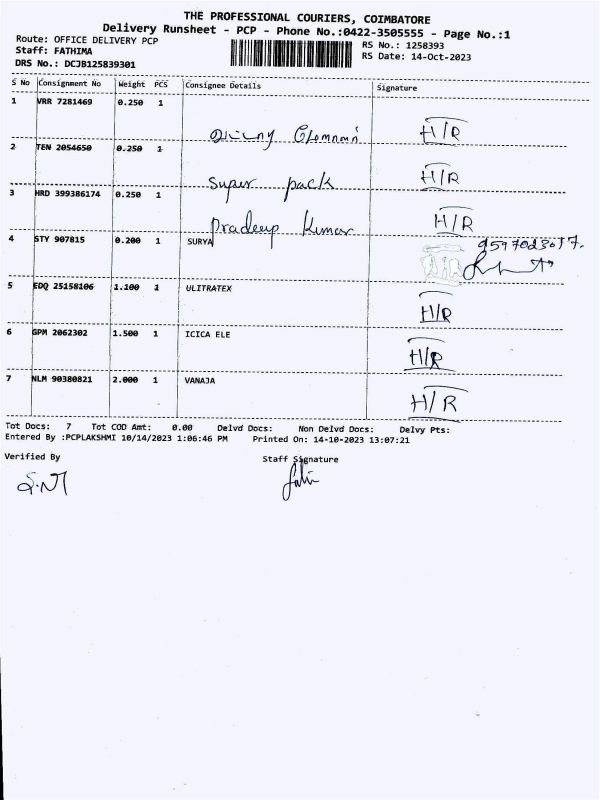 THE PROFESSIONAL COURIERS, COIMBATORE
Delivery Runsheet - PCP - Phone No.:0422-3505555 - Page No.:1
Route: OFFICE DELIVERY PCP RS No.: 1258393
Staff: FATHIMA RS Date: 14-Oct-2023
DRS No.: DCJB125839301
S No Consignment No Weight PCS Consignee Details Signature
1 VRR 7281469 0.250 1
H/R
2 TEN 2054650 0.250 1
Super pack H/R
3 HRD 399386174 0.250 1
Pradeep Kumar H/R
4 STY 907815 0.200 1 SURYA
5 EDQ 25158106 1.100 1 ULITRATEX
H/R
6 GPM 2062302 1.500 1 ICICA ELE
H/R
7 NLM 90380821 2.000 1 VANAJA
H/R
Tot Docs: 7 Tot COD Amt: 0.00 Delvd Docs: Non Delvd Docs: Delvy Pts:
Entered By :PCPLAKSHMI 10/14/2023 1:06:46 PM Printed On: 14-10-2023 13:07:21
Verified By Staff Signature